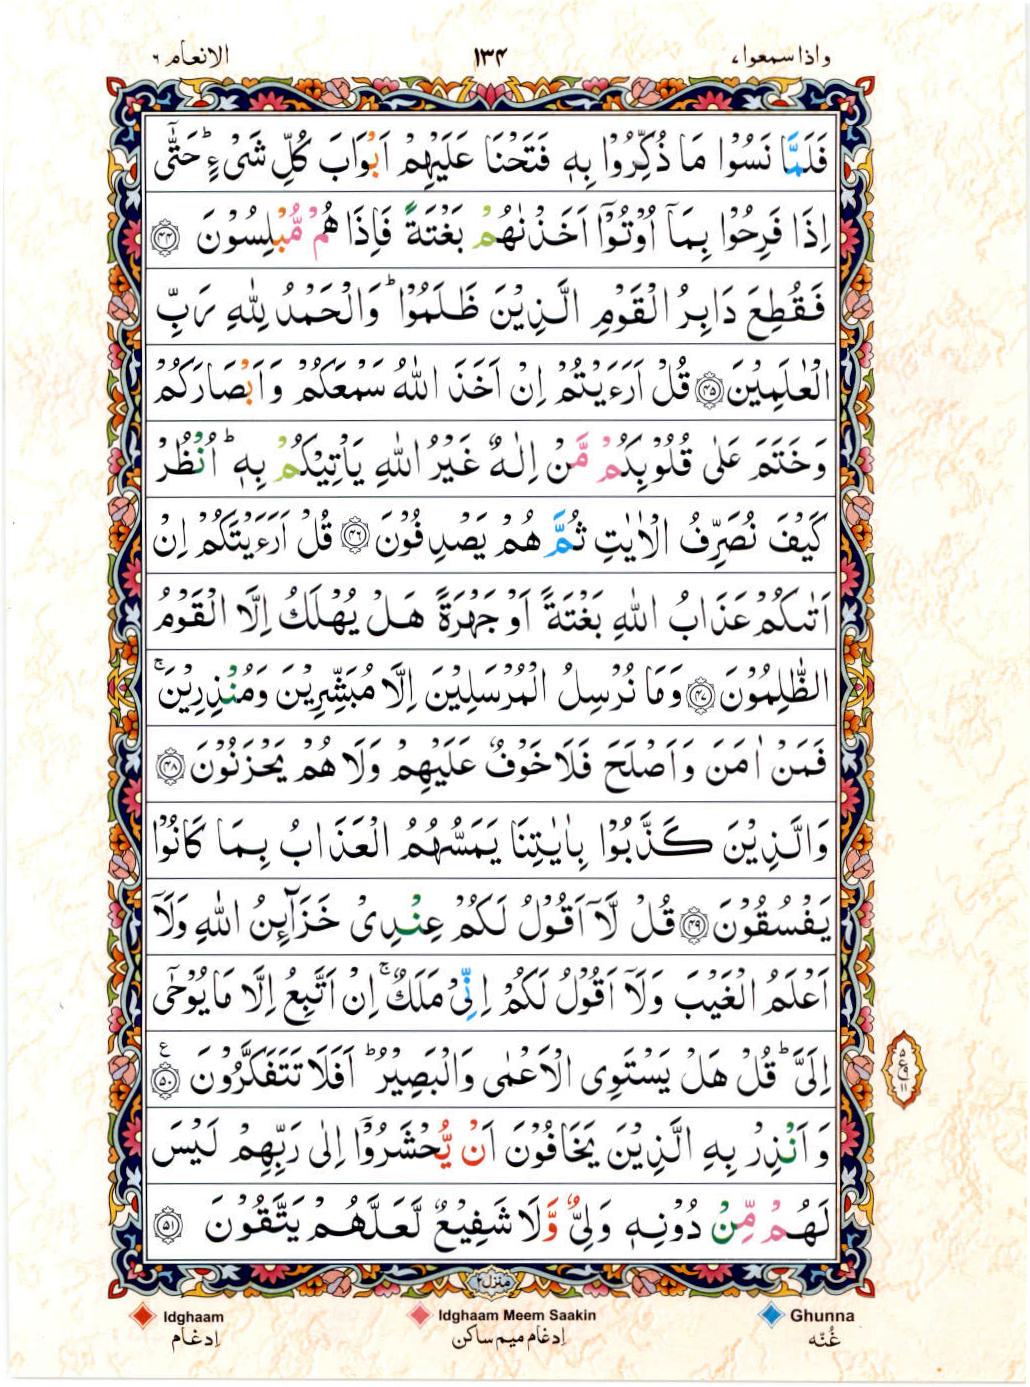 واذا سمعوا، ۱۳۴ الانعام ۶
فَلَمَّا نَسُوْا مَا ذُكِّرُوْا بِهٖ فَتَحْنَا عَلَيْهِمْ اَبْوَابَ كُلِّ شَىْءٍ ؕ حَتّٰٓى
اِذَا فَرِحُوْا بِمَاۤ اُوْتُوْۤا اَخَذْنٰهُمْ بَغْتَةً فَاِذَا هُمْ مُّبْلِسُوْنَ ﴿۴۴﴾
فَقُطِعَ دَابِرُ الْقَوْمِ الَّذِيْنَ ظَلَمُوْا ؕ وَالْحَمْدُ لِلّٰهِ رَبِّ
الْعٰلَمِيْنَ ﴿۴۵﴾ قُلْ اَرَءَيْتُمْ اِنْ اَخَذَ اللّٰهُ سَمْعَكُمْ وَ اَبْصَارَكُمْ
وَخَتَمَ عَلٰى قُلُوْبِكُمْ مَّنْ اِلٰهٌ غَيْرُ اللّٰهِ يَاْتِيْكُمْ بِهٖ ؕ اُنْظُرْ
كَيْفَ نُصَرِّفُ الْاٰيٰتِ ثُمَّ هُمْ يَصْدِفُوْنَ ﴿۴۶﴾ قُلْ اَرَءَيْتَكُمْ اِنْ
اَتٰىكُمْ عَذَابُ اللّٰهِ بَغْتَةً اَوْ جَهْرَةً هَلْ يُهْلَكُ اِلَّا الْقَوْمُ
الظّٰلِمُوْنَ ﴿۴۷﴾ وَمَا نُرْسِلُ الْمُرْسَلِيْنَ اِلَّا مُبَشِّرِيْنَ وَمُنْذِرِيْنَ ۚ
فَمَنْ اٰمَنَ وَ اَصْلَحَ فَلَا خَوْفٌ عَلَيْهِمْ وَلَا هُمْ يَحْزَنُوْنَ ﴿۴۸﴾
وَالَّذِيْنَ كَذَّبُوْا بِاٰيٰتِنَا يَمَسُّهُمُ الْعَذَابُ بِمَا كَانُوْا
يَفْسُقُوْنَ ﴿۴۹﴾ قُلْ لَّاۤ اَقُوْلُ لَكُمْ عِنْدِىْ خَزَآئِنُ اللّٰهِ وَلَاۤ
اَعْلَمُ الْغَيْبَ وَلَاۤ اَقُوْلُ لَكُمْ اِنِّىْ مَلَكٌ ۚ اِنْ اَتَّبِعُ اِلَّا مَا يُوْحٰٓى
اِلَىَّ ؕ قُلْ هَلْ يَسْتَوِى الْاَعْمٰى وَالْبَصِيْرُ ؕ اَفَلَا تَتَفَكَّرُوْنَ ﴿۵۰﴾ ع
وَ اَنْذِرْ بِهِ الَّذِيْنَ يَخَافُوْنَ اَنْ يُّحْشَرُوْۤا اِلٰى رَبِّهِمْ لَيْسَ
لَهُمْ مِّنْ دُوْنِهٖ وَلِىٌّ وَّلَا شَفِيْعٌ لَّعَلَّهُمْ يَتَّقُوْنَ ﴿۵۱﴾
منزل۲
Idghaam Idghaam Meem Saakin Ghunna
اِدغام اِدغام ميم ساكن غُنّه